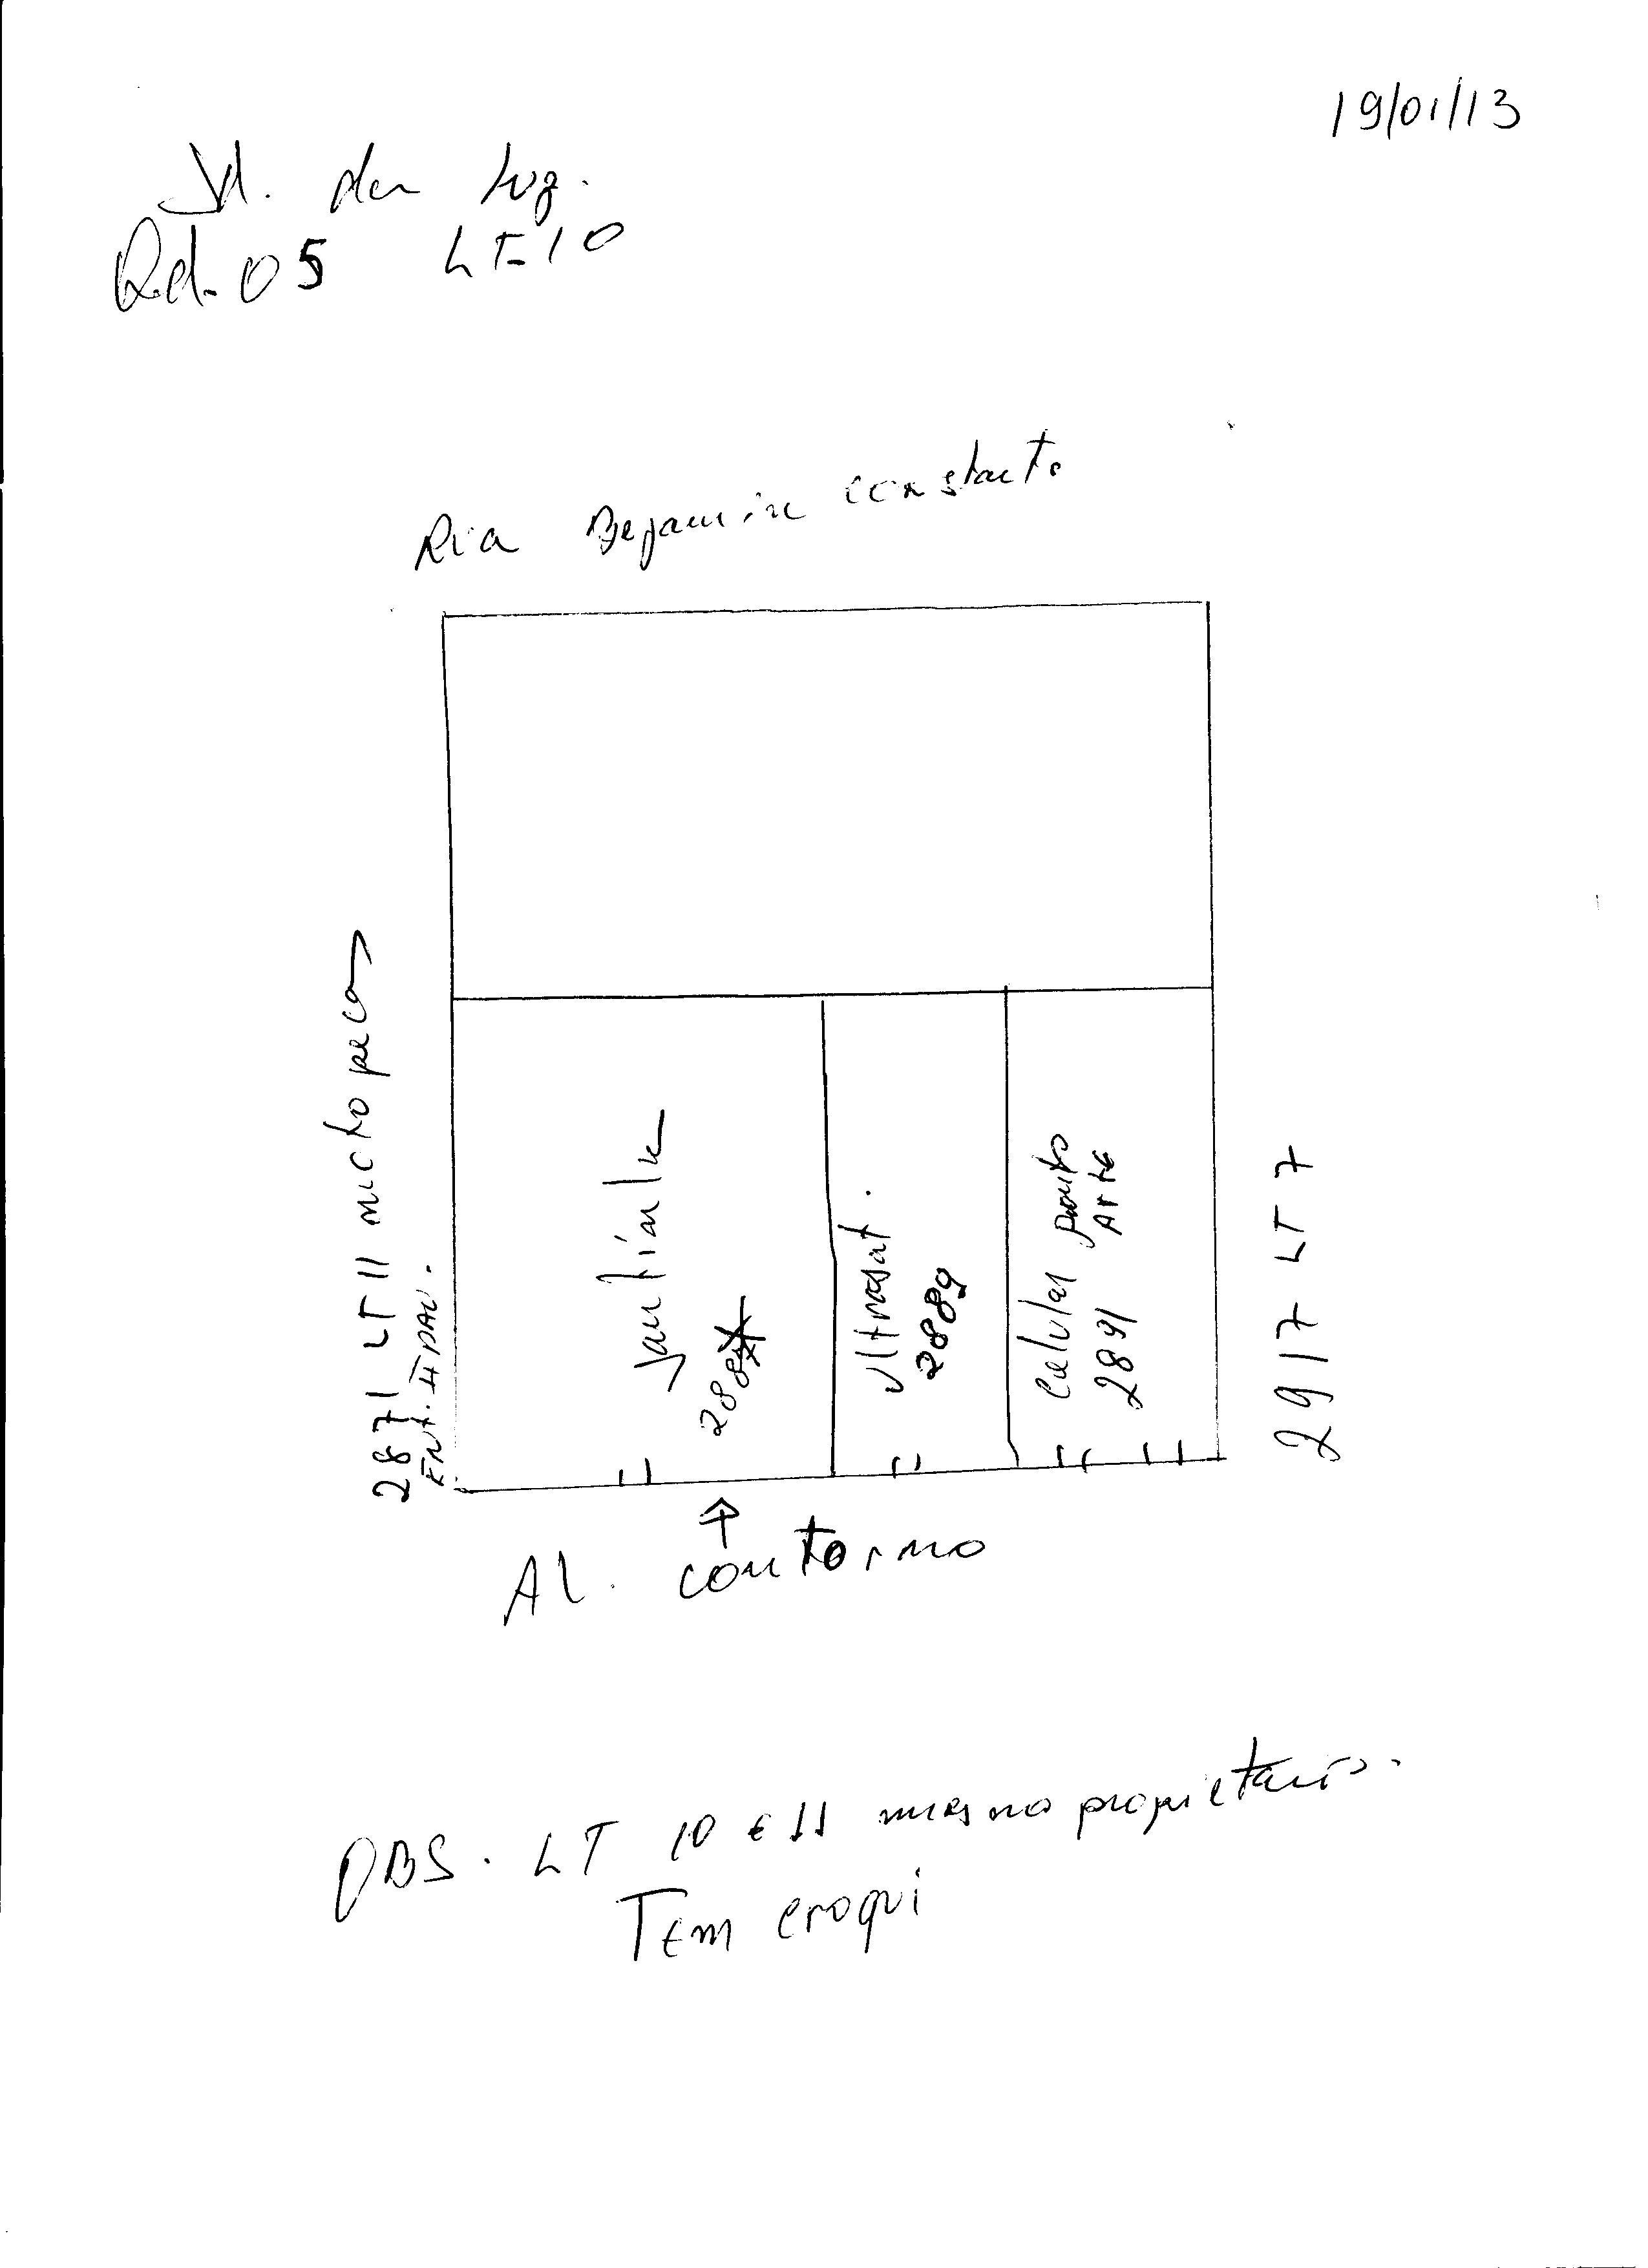 19/01/13
Jd. da Luz.
Qd. 05 LT-10
Rua Bejamin constante
2871 LT 11 micto peças
Ent. HDAU.
2917 LT 7
Ultrasat.
2889
Celular ponto
2891 Arte
Al. contorno
OBS. LT 10 e 11 mesmo proprietario.
Tem croqui